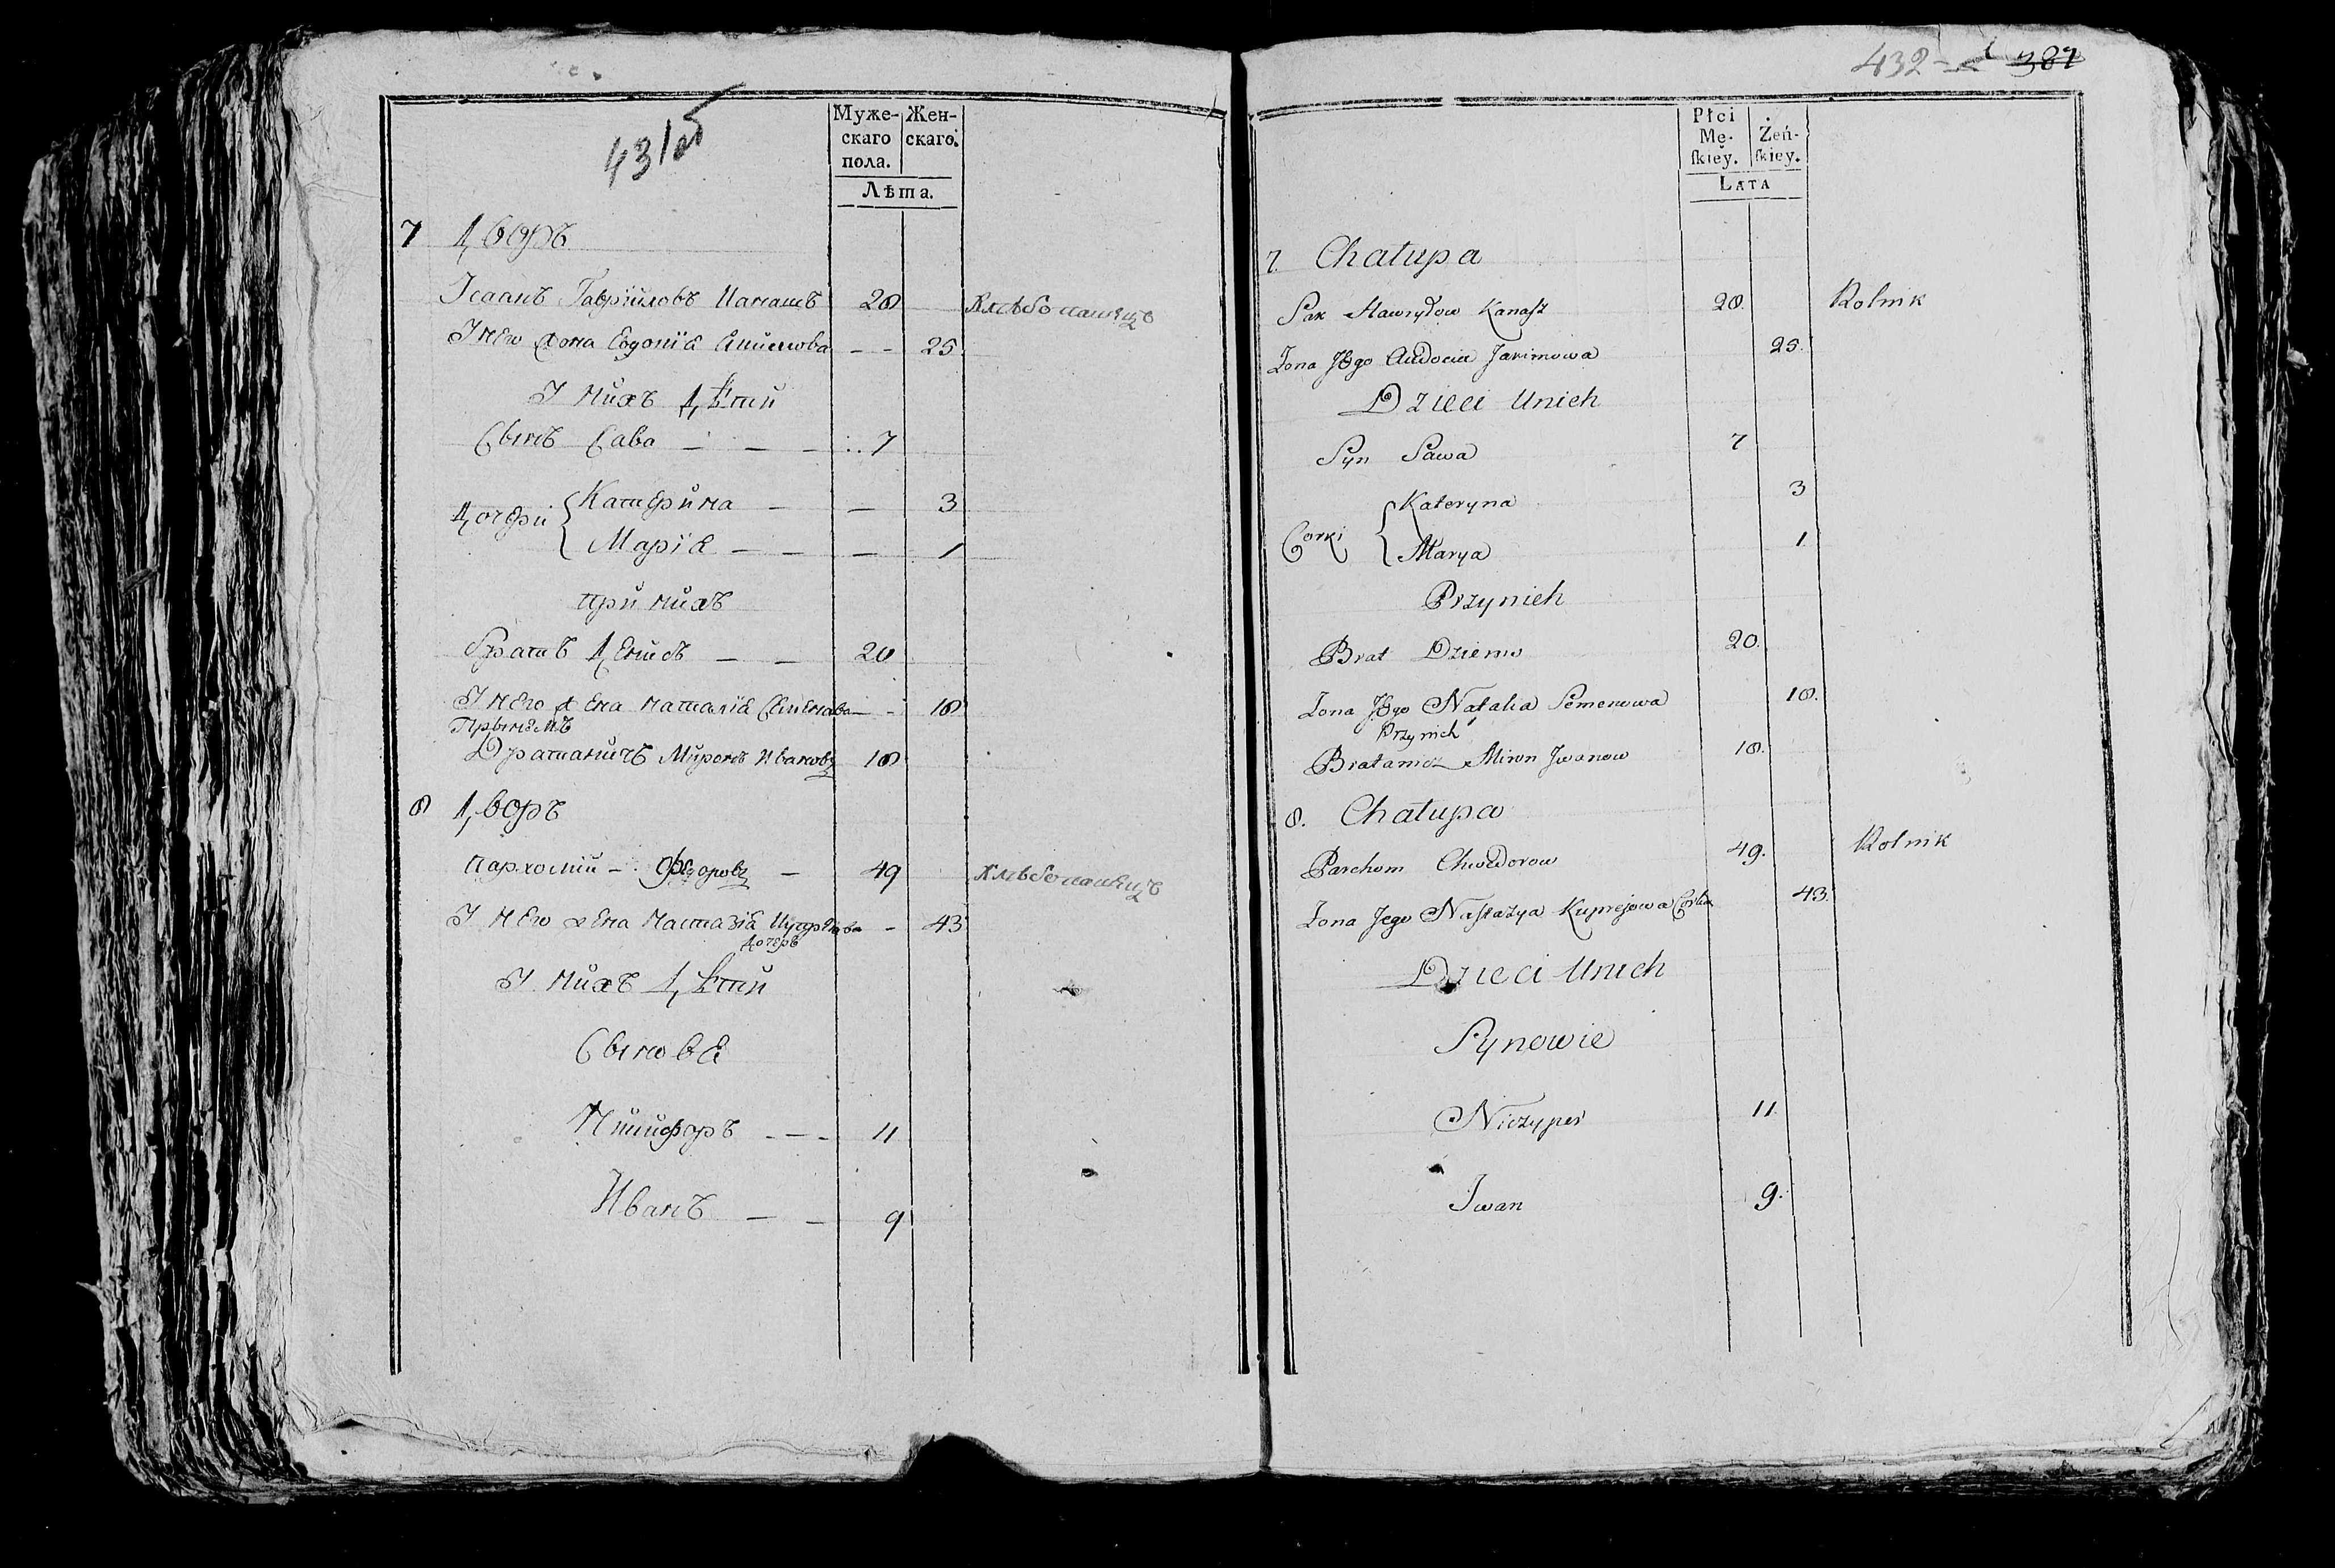 431об
Муже- Жен-
скаго скаго.
пола.
Лѣта.
7 Дворъ
Ісаакъ Гавриловъ Канашъ 28 Хлѣбопашецъ
У него жона Евдокія 25
У нихъ дѣти
Сынъ Сава 7
Дочери Катерина 3
Марія 1
при нихъ
Братъ Демидъ 20
У него жена Наталія Семенова 18
При немъ
Братаничъ Миронъ Ивановъ 18
8 Дворъ
Пархомій Федоровъ 49 Хлѣбопашецъ
У него жена Настазія 43
дочеръ
У нихъ дѣти
Сыновѣ
Ничипоръ 11
Иванъ 9
432 387
Płci Żeń-
Mę- skiey.
skiey.
Lata
7. Chałupa
Sak Hawryłow Kanasz 28. Rolnik
Zona Jego Audocia Jarimowa 25.
Dzieci Unich
Syn Sawa 7
Corki Kateryna 3
Marya 1.
Przynich
Brat 20.
Zona Jego Natalia Semenowa 18.
Przynich
Bratanicz Miron Jwanow 18.
8. Chałupa
Parchom Chwedorow 49. Rolnik
Zona Jego Nastazya Kuprejowa Corka 43.
Dzieci Unich
Synowie
Niczyper 11.
Jwan 9.